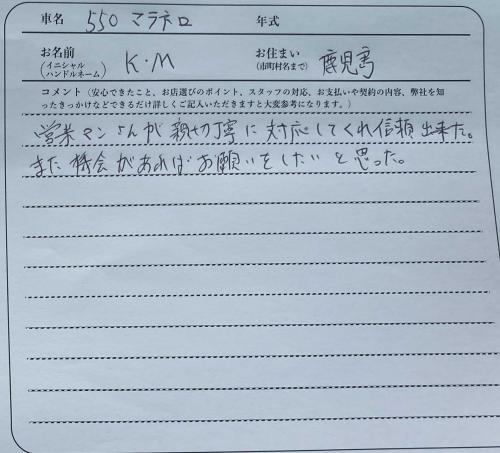 車名 550 マラネロ 年式
お名前 (イニシャル ハンドルネーム) K・M お住まい (市町村名まで) 鹿児島
コメント（安心できたこと、お店選びのポイント、スタッフの対応、お支払いや契約の内容、弊社を知
ったきっかけなどできるだけ詳しくご記入いただきますと大変参考になります。）
営業マンさんが親切丁寧に対応してくれ信頼出来た。
また機会があればお願いをしたいと思った。